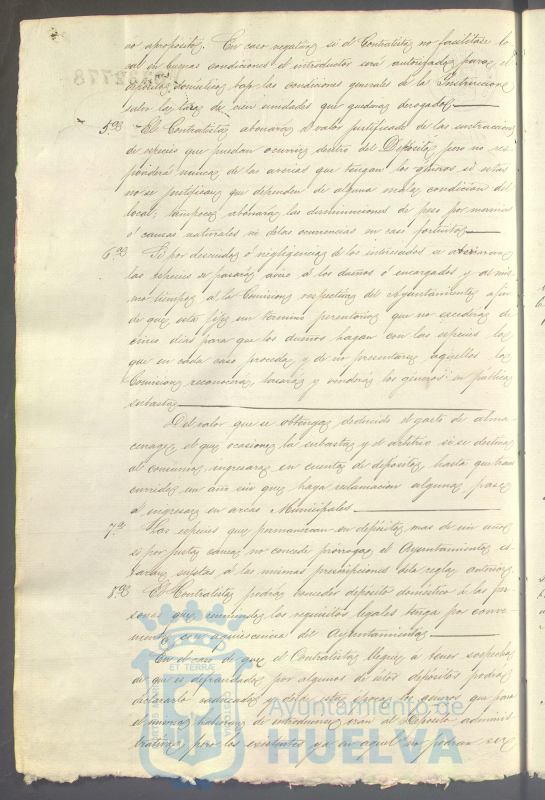 no apropositos. En caso negativo si el Contratista no facilitase lo
cal en buenas condiciones el introductor será autorizado para el
depósito doméstico bajo las condiciones generales de la Instruccion
salvo las de cien unidades que quedan derogados
5.ª El Contratista abonará el valor justificado de las sustracciones
de especies que puedan ocurrir dentro del Depósito, pero no res
ponderá nunca de las averias que tengan los géneros si estas
no se justifican que dependen de alguna mala condicion del
local; tampoco abonará las disminuciones de peso por mermas
ó causas naturales ni de las ocurrencias en caso fortuito
6.ª Si por descuido ó negligencia de los interesados se averiaran
las especies se pasará aviso á los dueños ó encargados y al mis
mo tiempo á la Comision respectiva del Ayuntamiento á fin
de que esta fije un término perentorio que no escederá de
cinco dias para que los dueños hagan con las especies lo
que en cada caso proceda, y de no presentarse aquellos la
Comision reconocerá, tasará y venderá los géneros en pública
subasta
Del valor que se obtenga deducido el gasto de alma-
cenage, el que ocasione la subasta y el arbitrio si se destina
al consumo, ingresará en cuenta de depósito, hasta que tran
curridos un año sin que haya reclamacion alguna, pase
á ingresar en arcas Municipales
7.ª Las especies que permanezcan en depósito mas de un año
si por justa causa no concede prórroga el Ayuntamiento es
tarán sujetas á las mismas prescripciones de la regla anterior
8.ª El Contratista podrá conceder depósito doméstico á las per
sonas que reuniendo los requisitos legales tenga por conve
niente con aquiescencia del Ayuntamiento
En el caso de que el Contratista llegue á tener sospechas
de que es defraudado por algunos de estos depósitos podrá
declararlo caducado y desde esta época los géneros que para
el mismo hubieran de introducirse irán al Depósito adminis
trativo, pero los existentes ya en aquel no podrán ser
ET TERRÆ
Ayuntamiento de
HUELVA